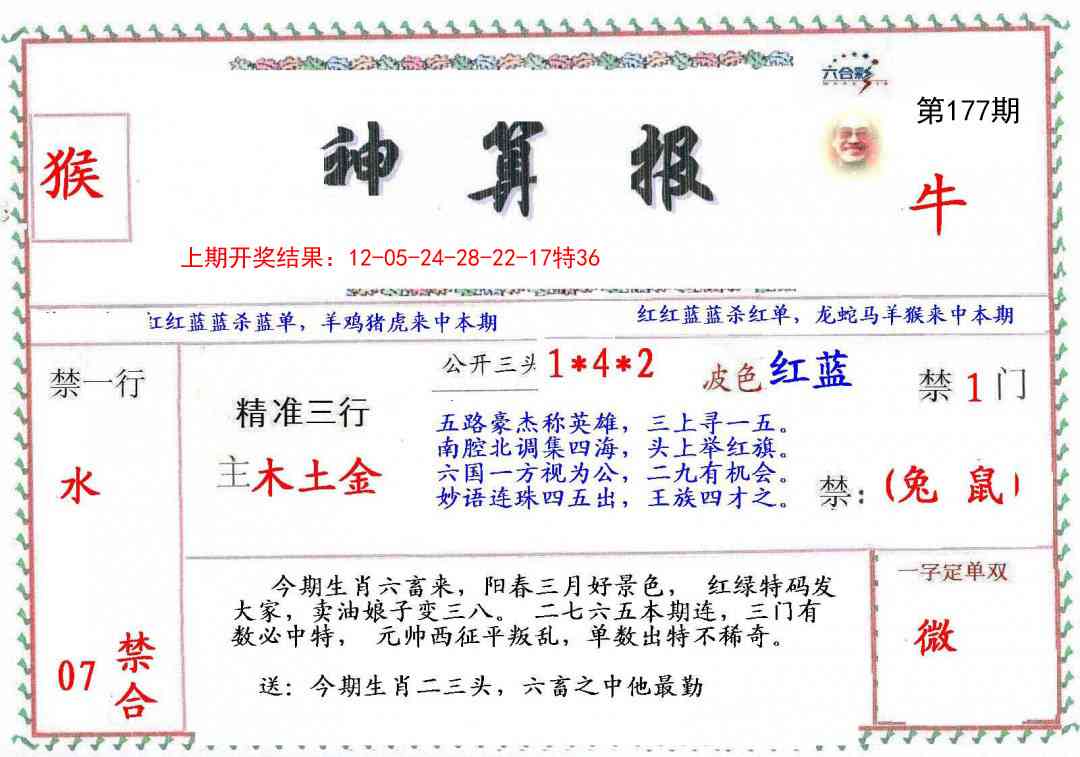 六合彩
第177期
猴
神算报
牛
上期开奖结果：12-05-24-28-22-17特36
红红蓝蓝杀蓝单，羊鸡猪虎来中本期
红红蓝蓝杀红单，龙蛇马羊猴来中本期
禁一行
水
07
禁合
精准三行
主木土金
公开三头 1*4*2
波色 红蓝
五路豪杰称英雄，三上寻一五。
南腔北调集四海，头上举红旗。
六国一方视为公，二九有机会。
妙语连珠四五出，王族四才之。
禁1门
禁：(兔 鼠)
今期生肖六畜来，阳春三月好景色， 红绿特码发
大家，卖油娘子变三八。 二七六五本期连，三门有
数必中特， 元帅西征平叛乱，单数出特不稀奇。
送：今期生肖二三头，六畜之中他最勤
一字定单双
微